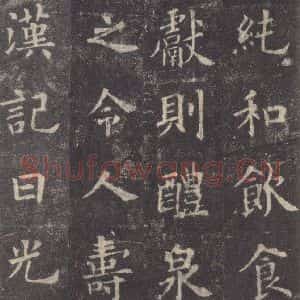 純和飲食
獻則醴泉
之令人壽
漢記日光
Shufawang.Cn